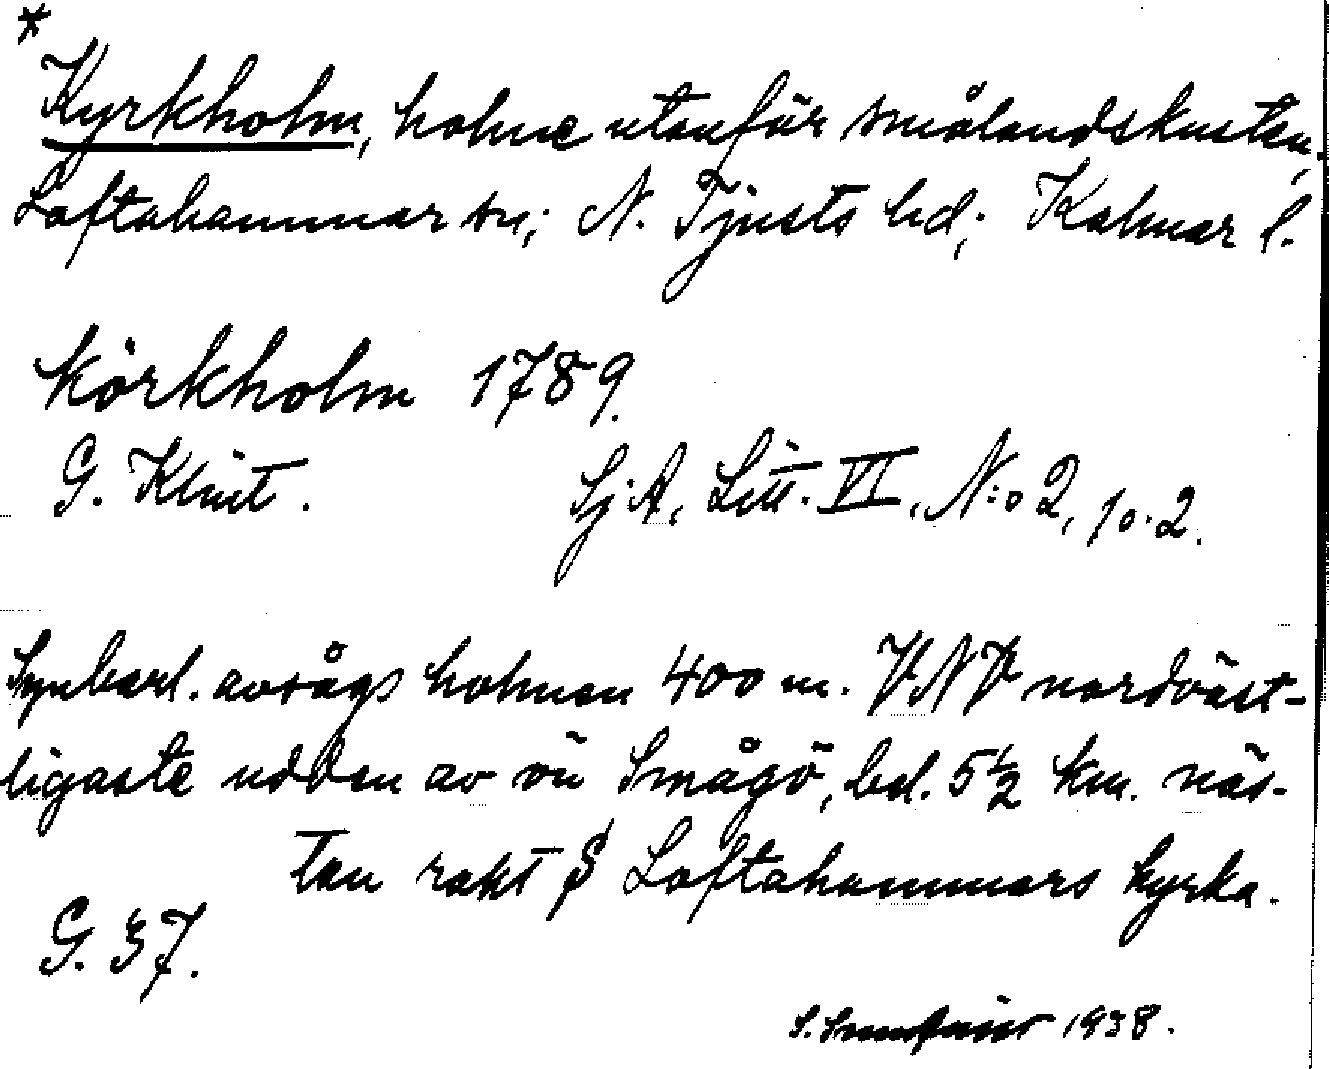 *
Kyrkholm, holme utanför smålandskusten,
Loftahammar sn; N. Tjusts hd; Kalmar l.
Körkholm 1789.
G. Klint. Sj.A, Litt. VI, N:o 2, 10.2.
Synbarl. avsågs holmen 400 m. VNV nordväst-
ligaste udden av ön Smågö, bel. 5½ km. näs-
tan rakt S Loftahammars kyrka.
G. 37.
1938.